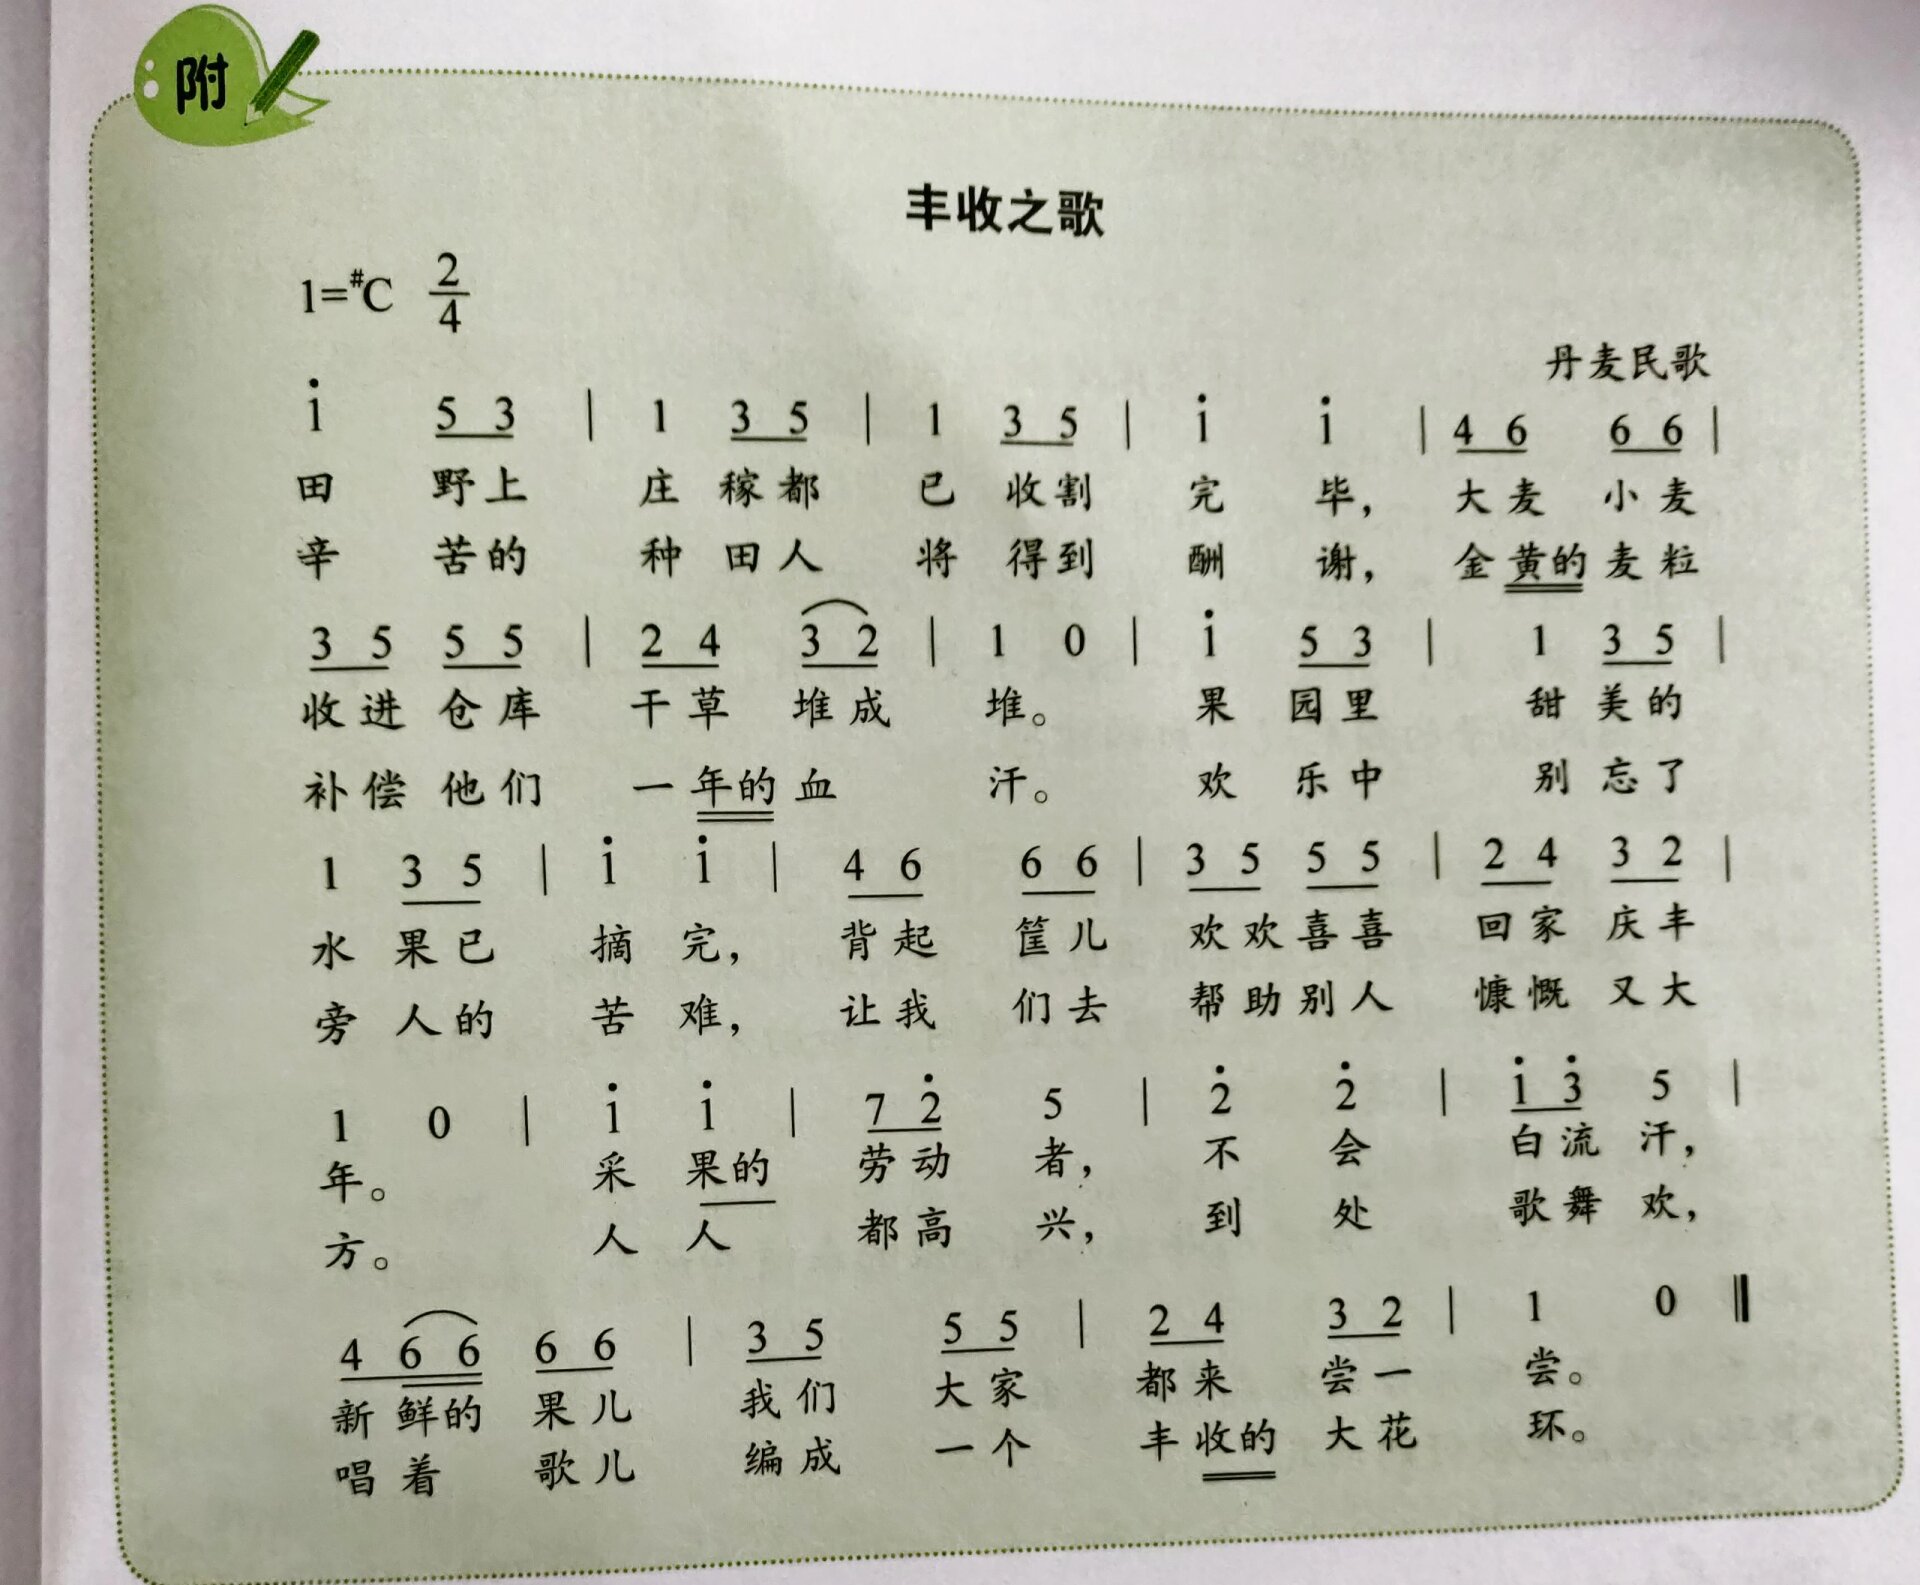 附
丰收之歌
1=#C 2/4
丹麦民歌
i 5 3 | 1 3 5 | 1 3 5 | i i | 4 6 6 6 |
田 野上 庄 稼都 已 收割 完 毕， 大麦 小麦
辛 苦的 种 田人 将 得到 酬 谢， 金黄的 麦粒
3 5 5 5 | 2 4 3 2 | 1 0 | i 5 3 | 1 3 5 |
收进 仓库 干草 堆成 堆。 果 园里 甜 美的
补偿 他们 一年的 血 汗。 欢 乐中 别 忘了
1 3 5 | i i | 4 6 6 6 | 3 5 5 5 | 2 4 3 2 |
水 果已 摘 完， 背起 筐儿 欢欢喜喜 回家 庆丰
旁 人的 苦 难， 让我 们去 帮助别人 慷慨 又大
1 0 | i i | 7 2̇ 5 | 2̇ 2̇ | i 3̇ 5 |
年。 采 果的 劳动 者， 不 会 白流 汗，
方。 人 人 都高 兴， 到 处 歌舞 欢，
4 6 6 6 6 | 3 5 5 5 | 2 4 3 2 | 1 0 ‖
新鲜的 果儿 我们 大家 都来 尝一 尝。
唱着 歌儿 编成 一个 丰收的 大花 环。